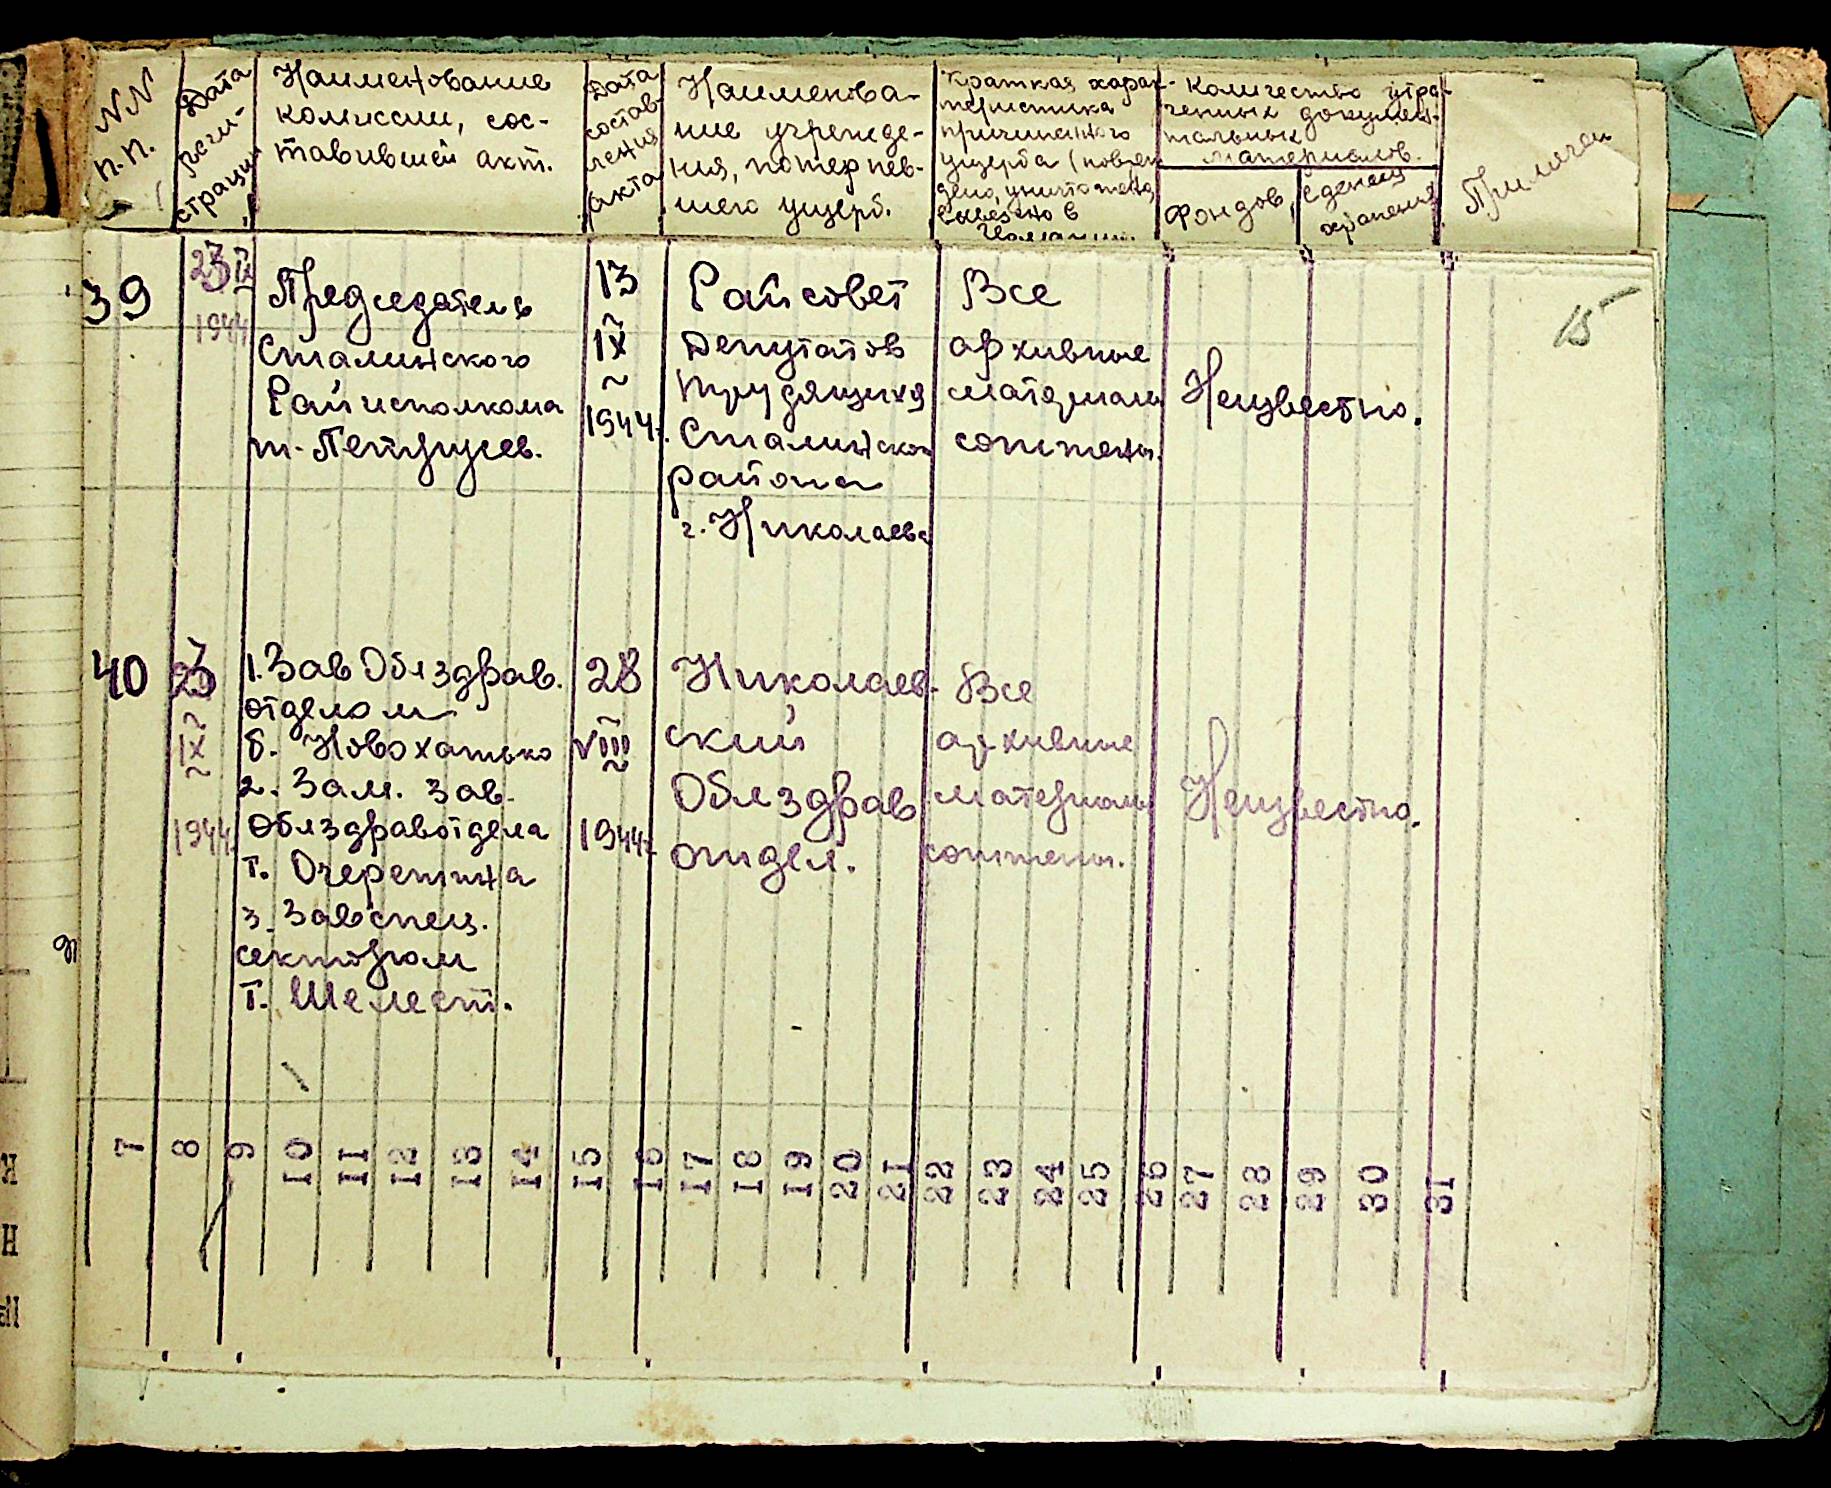 NN п.п.
Дата реги-
страции
Наименование
комиссии, сос-
тавившей акт.
Дата
состав-
ления
акта
Наименова-
ние учрежде-
ния, потерпев-
шего ущерб.
Краткая харак-
теристика
причиненного
ущерба (повреж
дено, уничтожено,
вывезено в
Количество утра-
ченных докумен-
тальных
материалов.
Фондов,
Единиц
хранения
Примечан
15
39
23
IX
1944
Председатель
Сталинского
Райисполкома
т. Петрусев.
13
IX
1944г.
Райсовет
Депутатов
трудящихся
Сталинског
района
г. Николаева
Все
архивные
материалы
сожжены.
Неизвестно.
40
23
IX
1944г.
1. Зав Облздрав.
отделом
т. Новохатько
2. Зам. Зав.
Облздравотдела
т. Очеретина
3. Завспец.
сектором
т. Шелест.
28
VIII
1944г.
Николаев-
ский
Облздрав
отдел.
Все
архивные
материалы
сожжены.
Неизвестно.
7 8 9 10 11 12 13 14 15 16 17 18 19 20 21 22 23 24 25 26 27 28 29 30 31